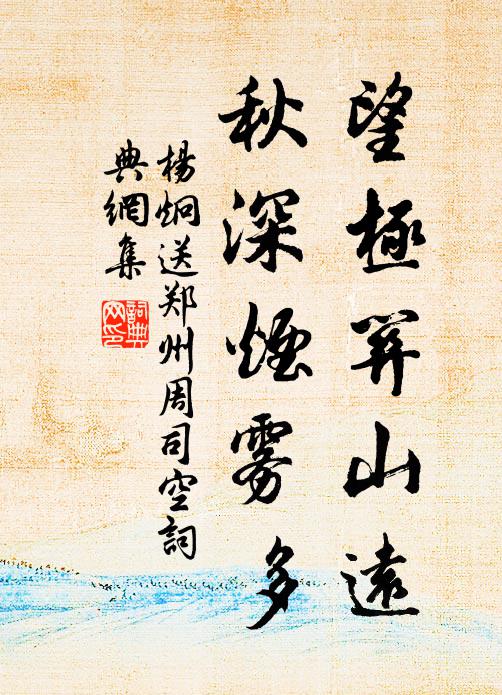 望極關山遠
秋深煙雾多
楊炯送郑州周司空詞
典網集
詞典
网印